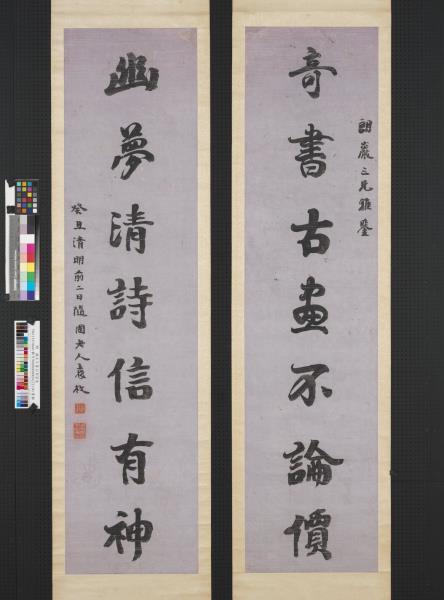 奇書古畫不論價
朗巖三兄雅鑒
幽夢清詩信有神
癸丑清明前二日隨園老人袁枚